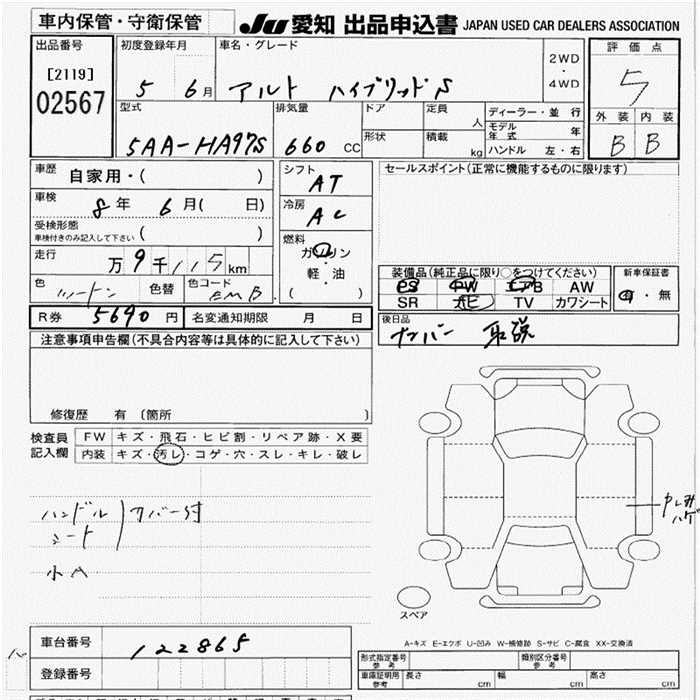 車内保管・守衛保管
JU 愛知 出品申込書 JAPAN USED CAR DEALERS ASSOCIATION
出品番号
[2119]
02567
初度登録年月
5 6月
車名・グレード
アルト ハイブリッドS
2WD
・
4WD
評価点
5
外装 内装
B B
型式
5AA-HA97S
排気量
660 CC
ドア
形状
定員 人
積載 kg
ディーラー・並行
モデル年式 年
ハンドル 左・右
車歴
自家用・( )
車検
8年 6月( 日)
受検形態
車検付きのみ記入して下さい ( )
走行
万9千115km
色
ツートン
色替
色コード
シフト
AT
冷房
AC
燃料
ガソリン
・
軽・油
( )
セールスポイント(正常に機能するものに限ります)
装備品(純正品に限り○をつけてください)
PS PW エアB AW
SR ナビ TV カワシート
新車保証書
有・無
R券 5690円
名変通知期限 月 日
後日品
ナンバー 取説
注意事項申告欄(不具合内容等は具体的に記入して下さい)
修復歴 有 (箇所 )
検査員
記入欄
FW キズ・飛石・ヒビ割・リペア跡・X要
内装 キズ・汚レ・コゲ・穴・スレ・キレ・破レ
ハンドル
シート
カバー付
小A
ハゲ
スペア
A-キズ E-エクボ U-凹み W-補修跡 S-サビ C-腐食 XX-交換済
車台番号
122865
登録番号
形式指定番号
参考
類別区分番号
参考
車庫証明用
参考
長さ cm
幅 cm
高さ cm